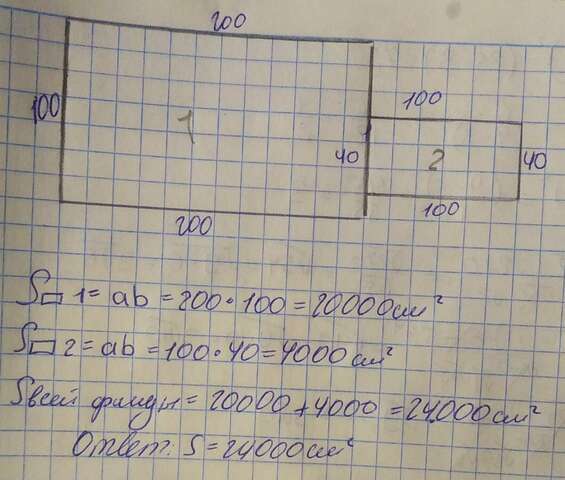 200
100
100
1
40
2
40
200
100
S▭ 1 = ab = 200 · 100 = 20000 см²
S▭ 2 = ab = 100 · 40 = 4000 см²
Sвсей фигуры = 20000 + 4000 = 24000 см²
Ответ: S = 24000 см²